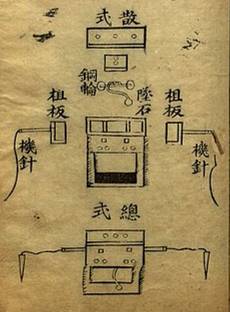 散式
鋼輪
墜石
柤板
柤板
機針
機針
總式